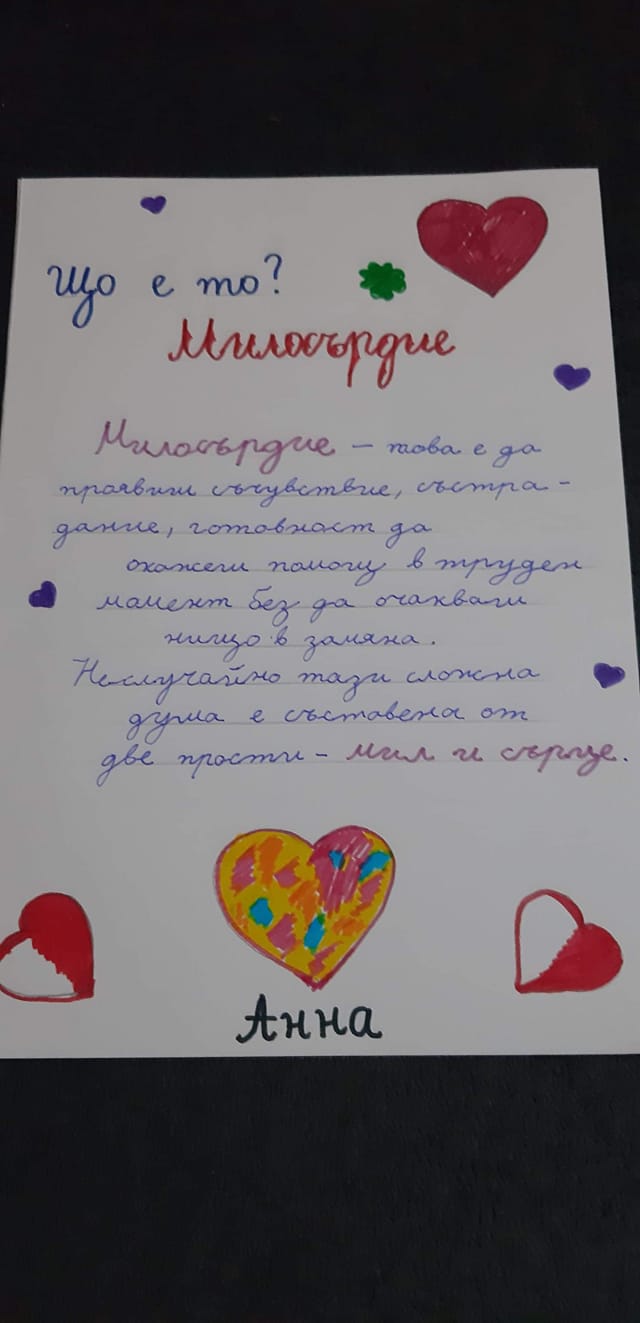 Що е то?
Милосърдие
Милосърдие – това е да
проявиш съчувствие, състра-
дание, готовност да
окажеш помощ в труден
момент без да очакваш
нищо в замяна.
Неслучайно тази сложна
дума е съставена от
две прости – мил и сърце.
Анна